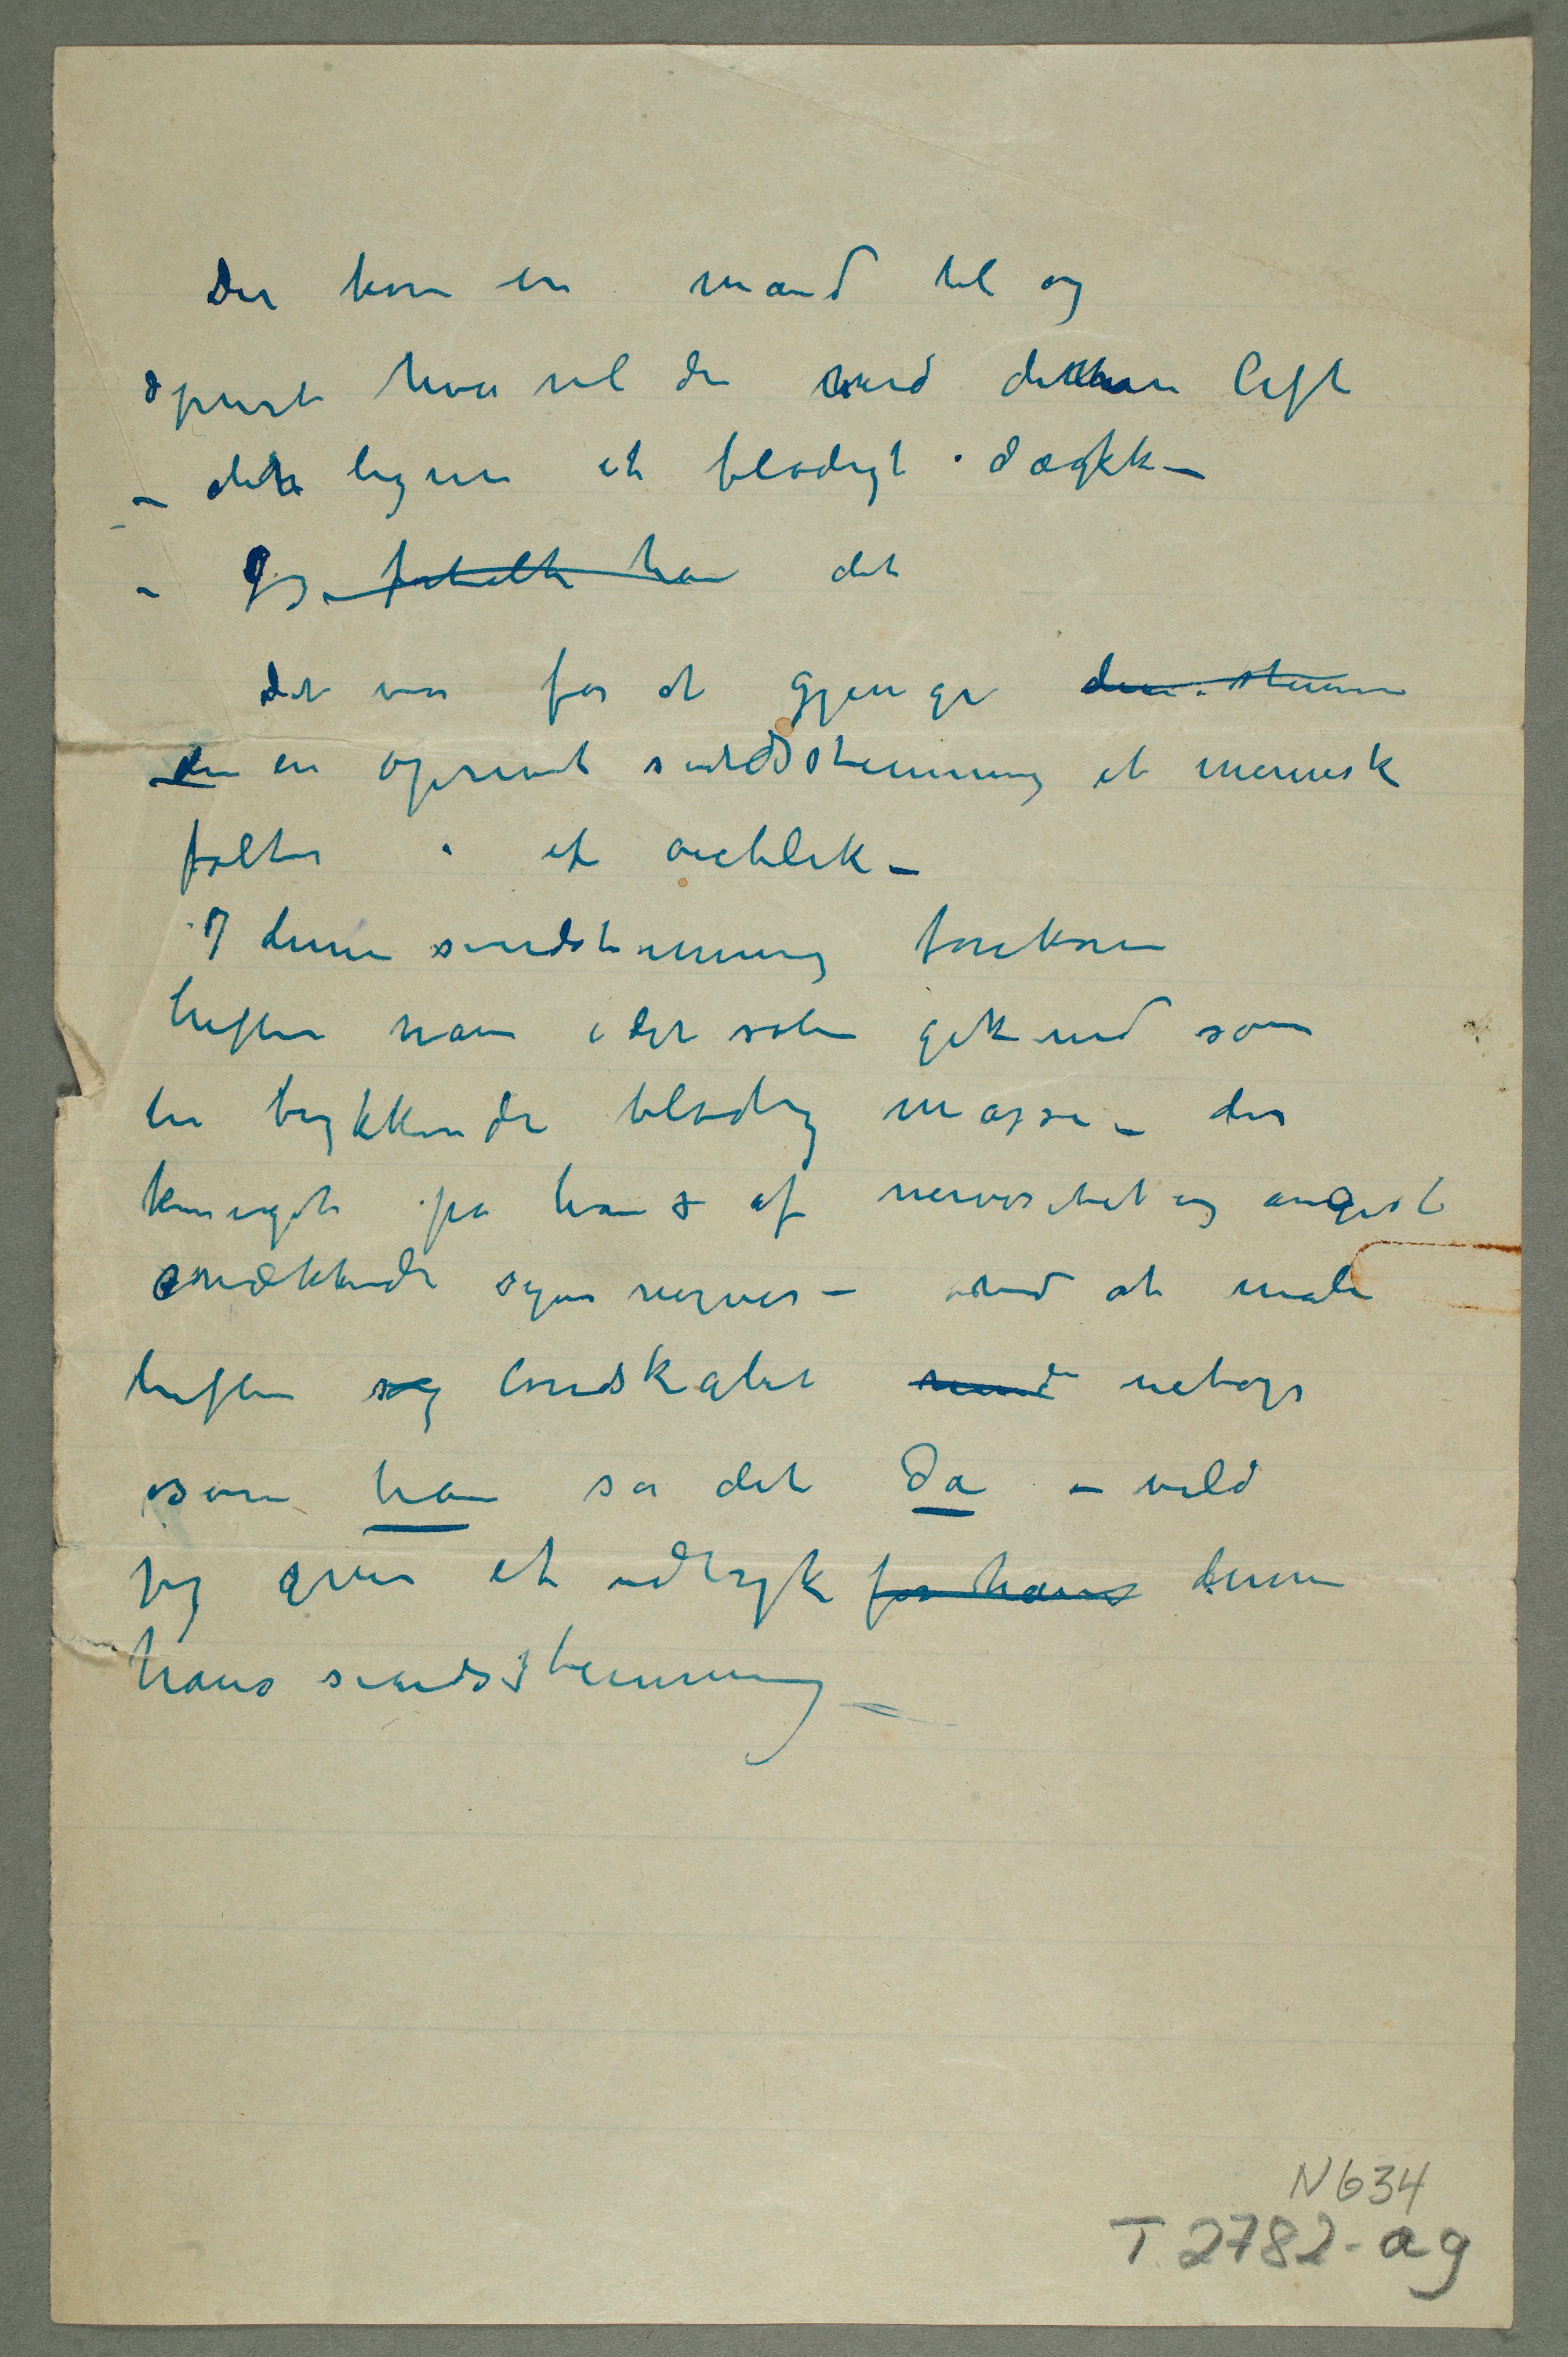 Der kom en mand til og
spurte hva vil de med denne luft
– det ligner et blodigt dække –
– Jeg fortalte ham det
det var for at gjengi den stemn
den en oprevet sindsstemning et menneske
følte i et øieblik –
I denne sindstemning forekom
luften ham idet solen gik ned som
en trykkende blodig masse – der
på hans af nervøsitet og angst
svækkede synsnerver – ved at male
luften og landskabet netop
som han så det da – vilde
jeg give et udtryk for hans denne
hans sindsstemning –
N634
T2782-ag